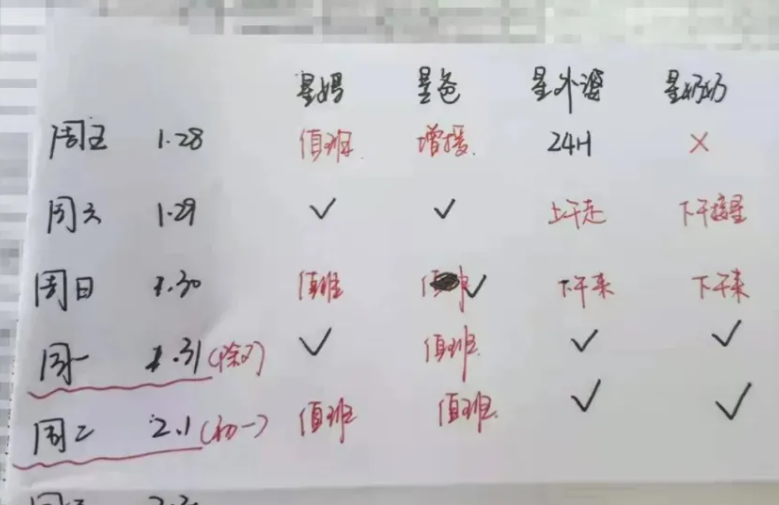 星妈 星爸 星外婆 星奶奶
周五 1.28 值班 增援 24H ×
周六 1.29 ✓ ✓ 上午走 下午接星
周日 1.30 值班 ✓ 下午来 下午来
周一 1.31(除夕) ✓ 值班 ✓ ✓
周二 2.1(初一) 值班 值班 ✓ ✓